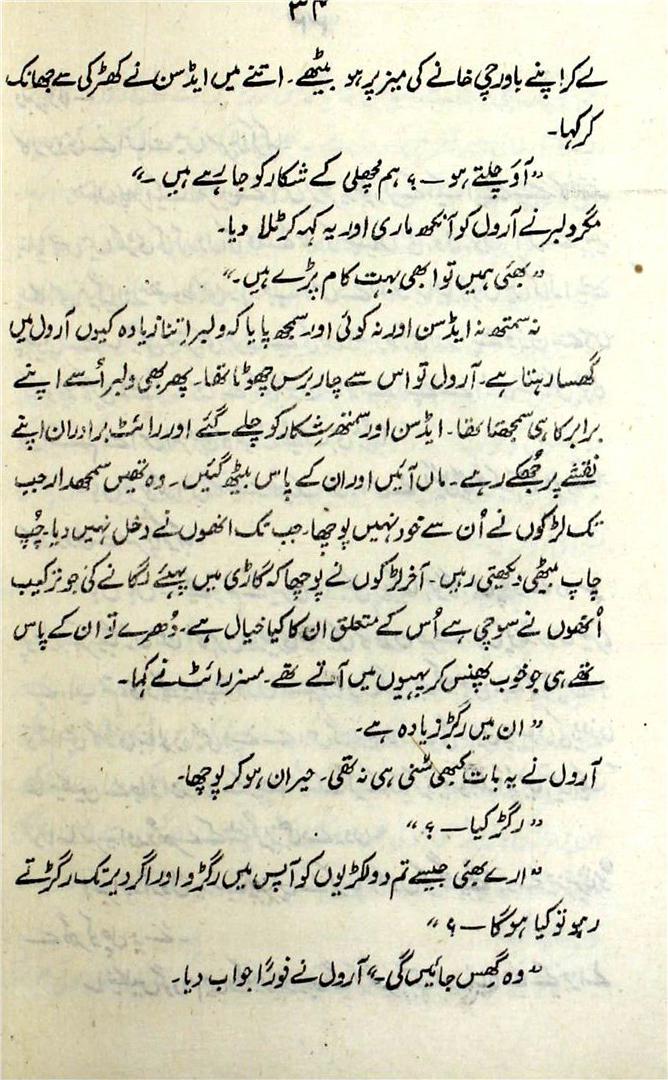 ۳۴
لے کر اپنے باورچی خانے کی میز پر ہو بیٹھے۔ اتنے میں ایڈسن نے کھڑکی سے جھانک
کر کہا۔
”آؤ چلتے ہو—؟ ہم مچھلی کے شکار کو جا رہے ہیں—“
مگر ولبر نے آرول کو آنکھ ماری اور یہ کہہ کر ٹلا دیا۔
”بھئی ہمیں تو ابھی بہت کام پڑے ہیں۔“
نہ سمتھ نہ ایڈسن اور نہ کوئی اور سمجھ پایا کہ ولبر اِتنا زیادہ کیوں آرول میں
گھسا رہتا ہے۔ آرول تو اس سے چار برس چھوٹا تھا۔ پھر بھی ولبر اُسے اپنے
برابر کا ہی سمجھتا تھا۔ ایڈسن اور سمتھ شکار کو چلے گئے اور رائٹ برادران اپنے
نقشے پر جُھکے رہے۔ ماں آئیں اور ان کے پاس بیٹھ گئیں۔ وہ تھیں سمجھدار جب
تک لڑکوں نے اُن سے خود نہیں پوچھا۔ جب تک انھوں نے دخل نہیں دیا۔ چُپ
چاپ بیٹھی دیکھتی رہیں۔ آخر لڑکوں نے پوچھا کہ گاڑی میں پہیئے لگانے کی جو ترکیب
اُنھوں نے سوچی ہے اُس کے متعلق ان کا کیا خیال ہے۔ دُھرے تو ان کے پاس
تھے ہی جو خوب پھنس کر پہیوں میں آتے تھے۔ مسز رائٹ نے کہا۔
”ان میں رگڑ زیادہ ہے۔
آرول نے یہ بات کبھی سُنی ہی نہ تھی۔ حیران ہو کر پوچھا۔
”رگڑ کیا—؟“
”ارے بھئی جیسے تم دو لکڑیوں کو آپس میں رگڑو اور اگر دیر تک رگڑتے
رہو تو کیا ہو گا—؟“
”وہ گھس جائیں گی۔“ آرول نے فوراً جواب دیا۔